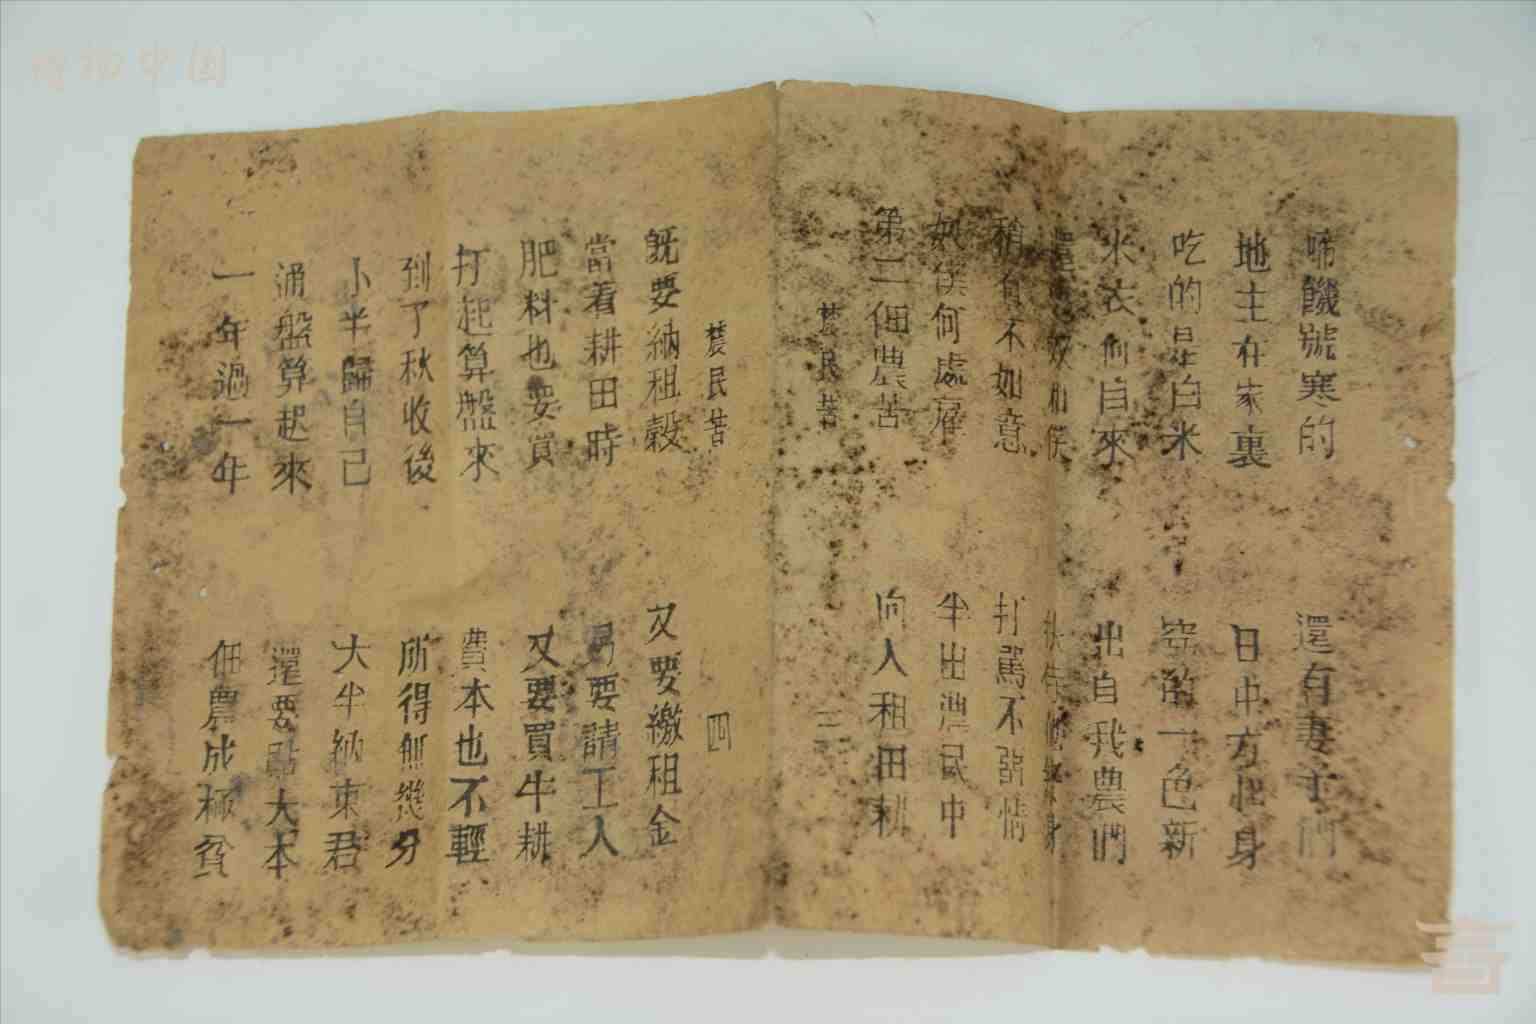 啼饑號寒的 還有妻子們
地主在家裏 日中方起身
吃的是白米 穿的一色新
米衣何自來 出自我農們
還 奴和僕
稍有不如意 打罵不留情
奴僕何處雇 半出農民中
第二佃農苦 向人租田耕
農民苦 三
農民苦 四
既要納租穀 又要繳租金
當看耕田時 另要請工人
肥料也要買 又要買牛耕
打起算盤來 費本也不輕
到了秋收後 所得無幾分
小半歸自己 大半納東君
通盤算起來 還要貼大本
一年過一年 佃農成極貧
中国